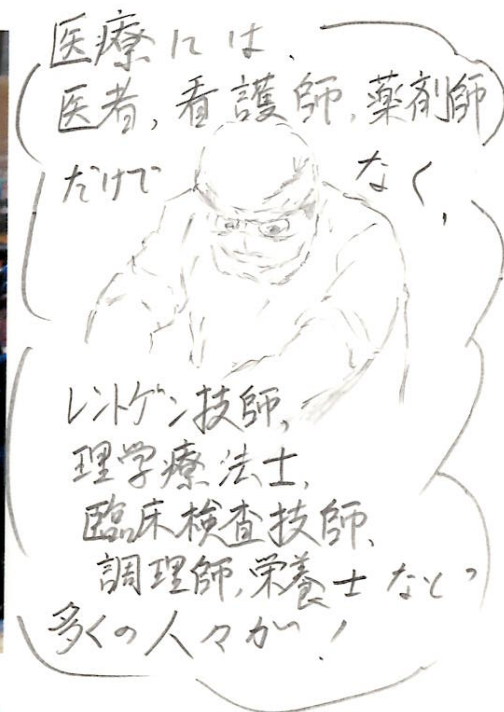 医療には、
医者,看護師,薬剤師
だけで なく、
レントゲン技師,
理学療法士,
臨床検査技師、
調理師,栄養士など
多くの人々が!